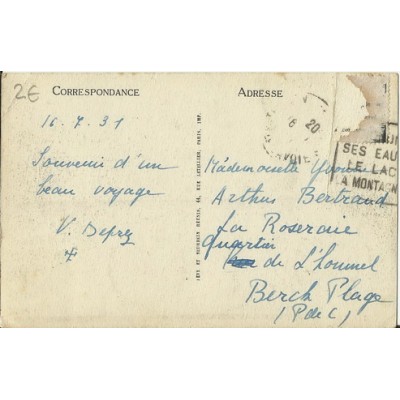 2€
CORRESPONDANCE
ADRESSE
16.7.31
Souvenir d'un
beau voyage
V. Deprez
Mademoiselle Yvonne
Arthur Bertrand
La Roseraie
Quartier
de L'hommel
Berck Plage
(P de C)
20
SES EAU
LE LAC
LA MONTAGN